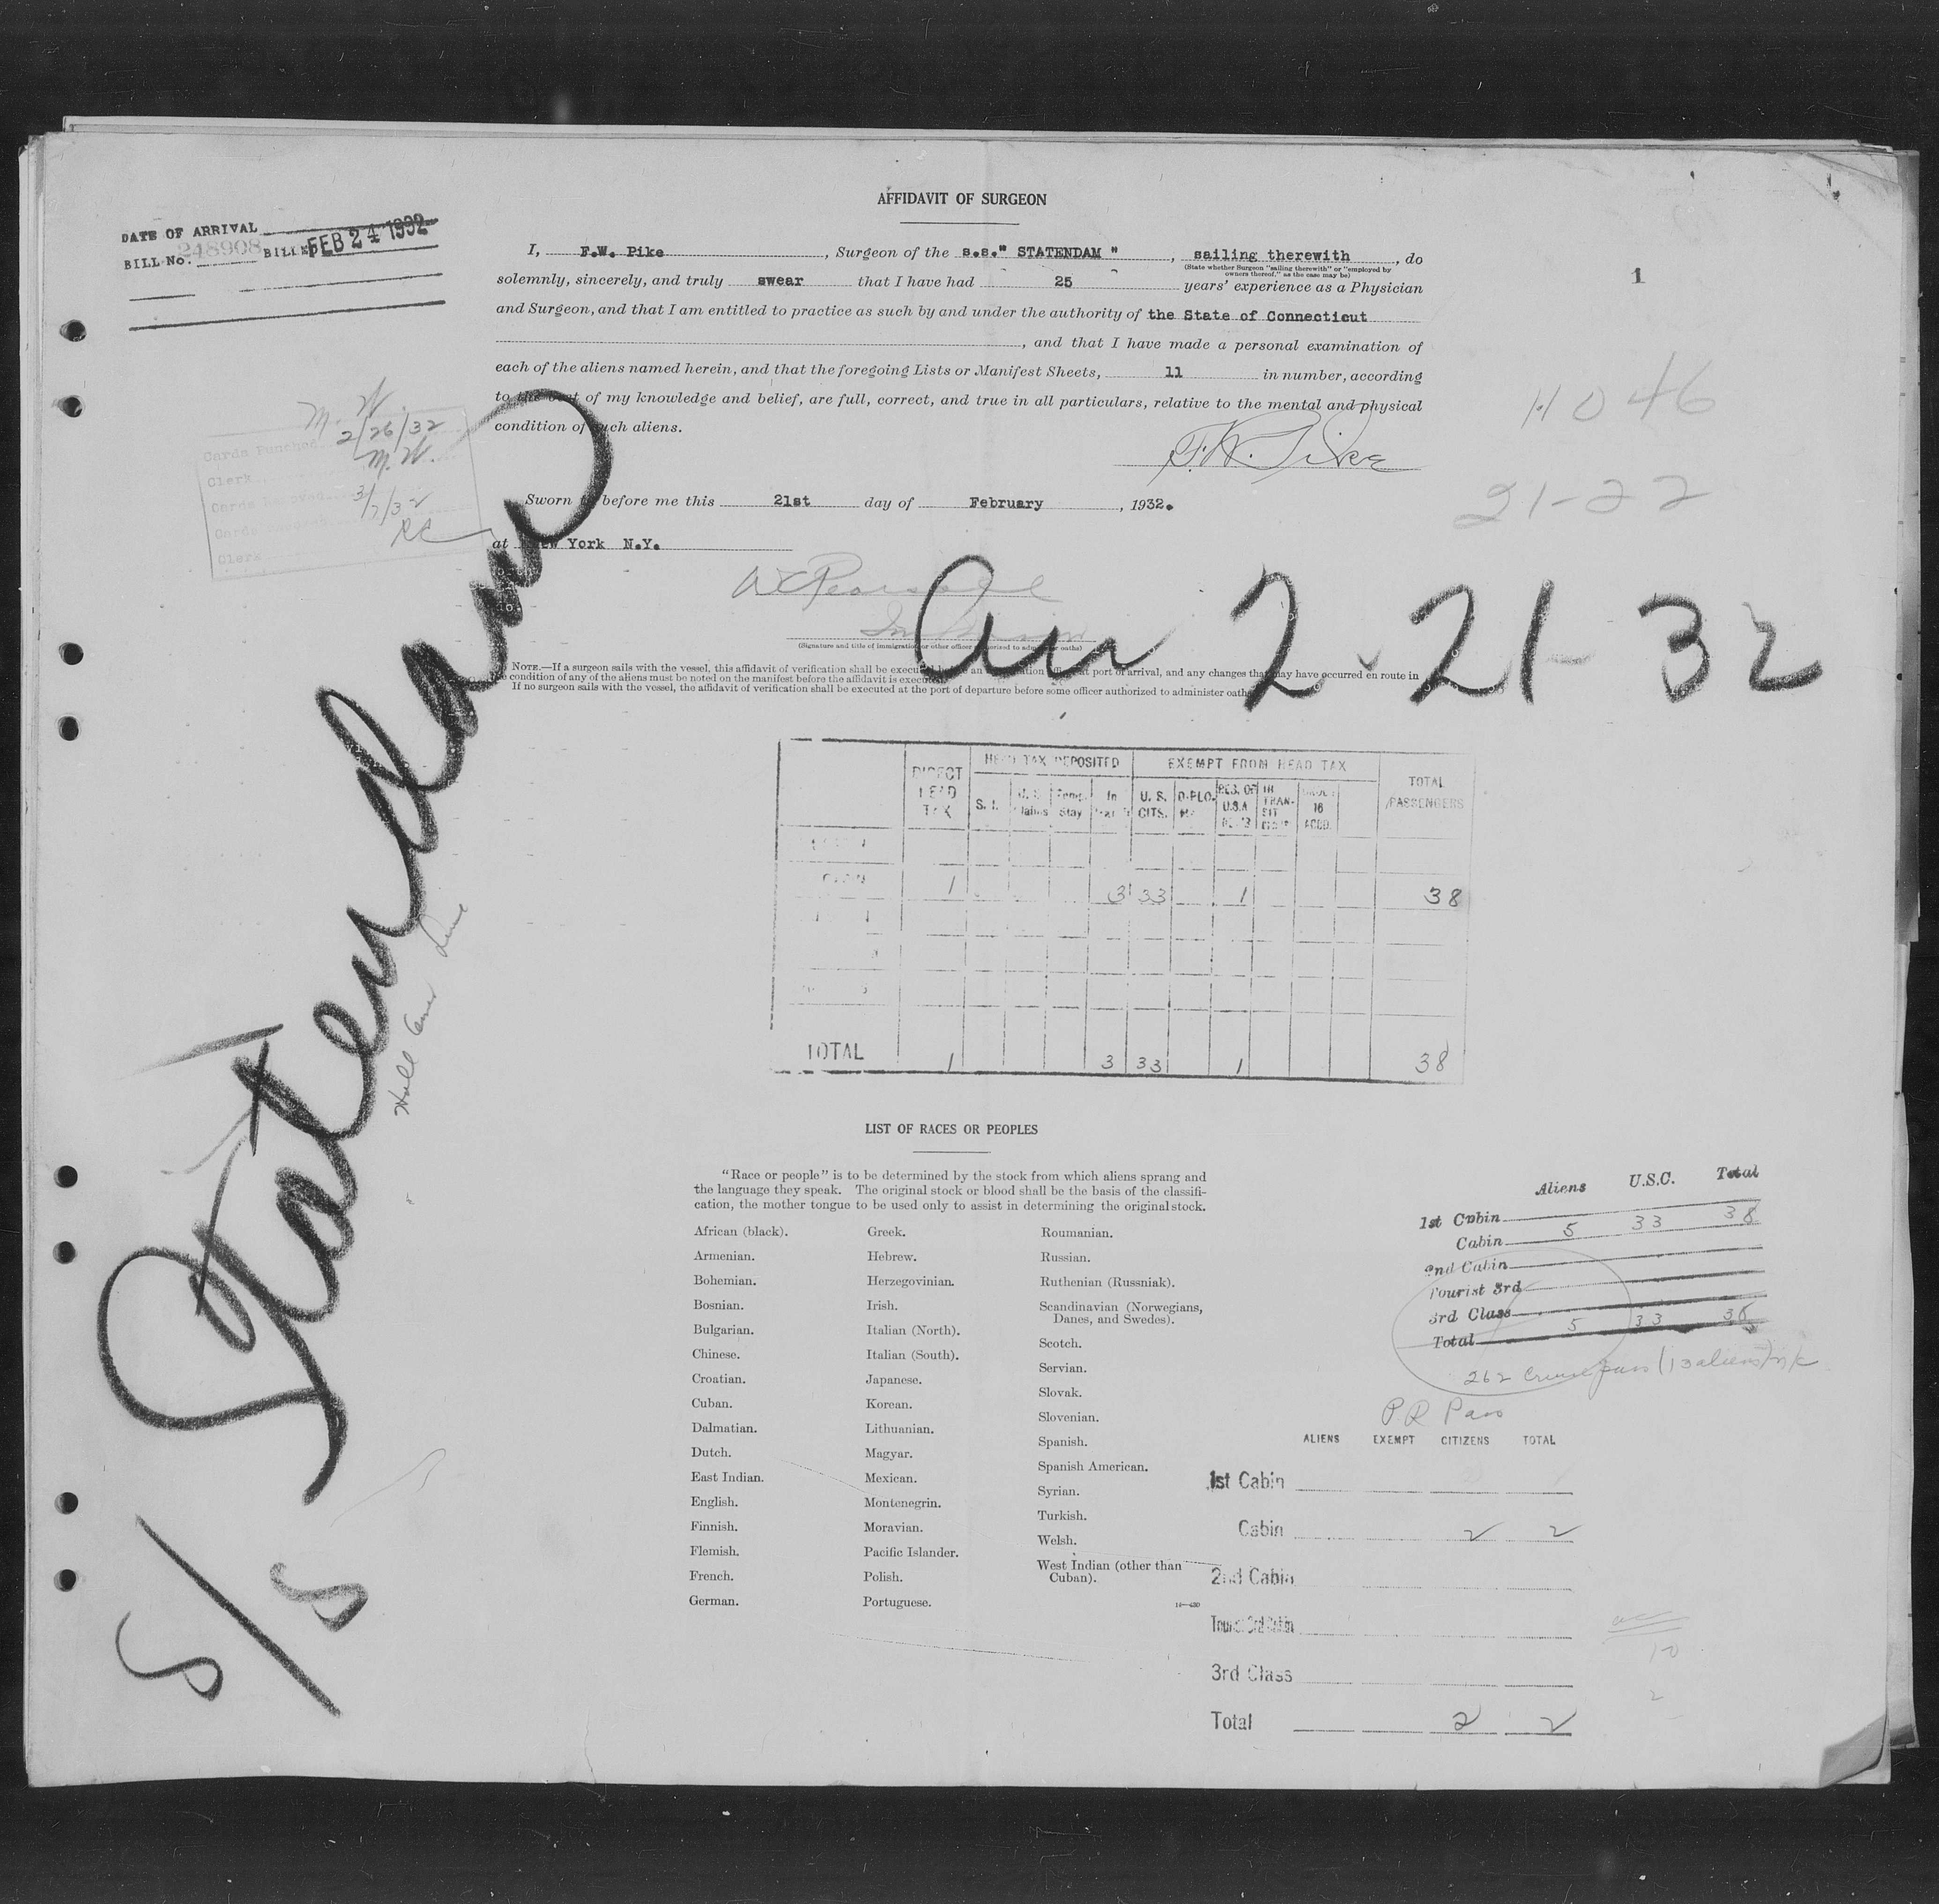 AFFIDAVIT OF SURGEON
DATE OF ARRIVAL
BILL No. 248908 BILL No. FEB 24 1932
1
I, F.W. Pike, Surgeon of the s.s." STATENDAM ", sailing therewith, do
(State whether Surgeon "sailing therewith" or "employed by
owners thereof," as the case may be)
solemnly, sincerely, and truly swear that I have had 25 years' experience as a Physician
and Surgeon, and that I am entitled to practice as such by and under the authority of the State of Connecticut
, and that I have made a personal examination of
each of the aliens named herein, and that the foregoing Lists or Manifest Sheets, 11 in number, according
to the best of my knowledge and belief, are full, correct, and true in all particulars, relative to the mental and physical
condition of such aliens.
F.W. Pike
Sworn to before me this 21st day of February, 1932.
at New York N.Y.
(Signature and title of immigration or other officer authorized to administer oaths)
NOTE.—If a surgeon sails with the vessel, this affidavit of verification shall be executed before an immigration officer at port of arrival, and any changes that may have occurred en route in
the condition of any of the aliens must be noted on the manifest before the affidavit is executed.
If no surgeon sails with the vessel, the affidavit of verification shall be executed at the port of departure before some officer authorized to administer oaths.
M. W.
Cards Punched 2/26/32
Clerk M. W.
3/7/32
Cards RC
Clerk
21-22
Arr 2-21-32
S/S Statendam
Holl Amer Line
DIRECT HEAD TAX
HEAD TAX DEPOSITED
EXEMPT FROM HEAD TAX
TOTAL PASSENGERS
S. I.
Temp. Stay
U. S. CITS.
DIPLO-
RES. OF U.S.A
IN TRAN-SIT
16 ACCD.
CABIN 1 3 33 1 38
TOTAL 1 3 33 1 38
LIST OF RACES OR PEOPLES
"Race or people" is to be determined by the stock from which aliens sprang and
the language they speak. The original stock or blood shall be the basis of the classifi-
cation, the mother tongue to be used only to assist in determining the original stock.
African (black).
Armenian.
Bohemian.
Bosnian.
Bulgarian.
Chinese.
Croatian.
Cuban.
Dalmatian.
Dutch.
East Indian.
English.
Finnish.
Flemish.
French.
German.
Greek.
Hebrew.
Herzegovinian.
Irish.
Italian (North).
Italian (South).
Japanese.
Korean.
Lithuanian.
Magyar.
Mexican.
Montenegrin.
Moravian.
Pacific Islander.
Polish.
Portuguese.
Roumanian.
Russian.
Ruthenian (Russniak).
Scandinavian (Norwegians,
Danes, and Swedes).
Scotch.
Servian.
Slovak.
Slovenian.
Spanish.
Spanish American.
Syrian.
Turkish.
Welsh.
West Indian (other than
Cuban).
14—430
Aliens U.S.C. Total
1st Cabin
Cabin 5 33 38
2nd Cabin
Tourist 3rd
3rd Class
Total 5 33 38
262 Cruise pass (13 aliens)
P R Pass
ALIENS EXEMPT CITIZENS TOTAL
1st Cabin
Cabin 2 2
2nd Cabin
3rd Class
Total 2 2